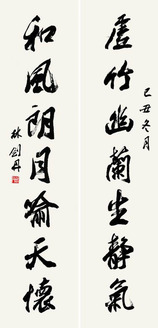 虛竹幽蘭生靜氣
己丑冬月
和風朗月喻天懷
林剑丹